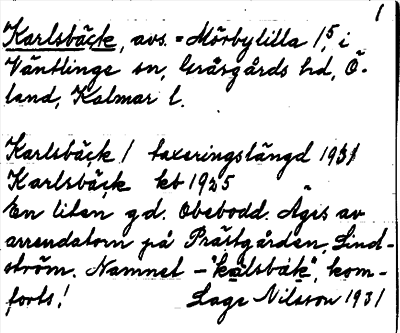 1
Karlsbäck, avs. = Mörbylilla 1,5 i
Ventlinge sn, Gräsgårds hd, Ö-
land, Kalmar l.
Karlsbäck / taxeringslängd 1931
Karlsbäck kb 1925
En liten gd. Obebodd. Ägs av
arrendatorn på Prästgården, Lind-
ström. Namnet - "kalsbäk", kom-
forts!
Lage Nilsson 1931